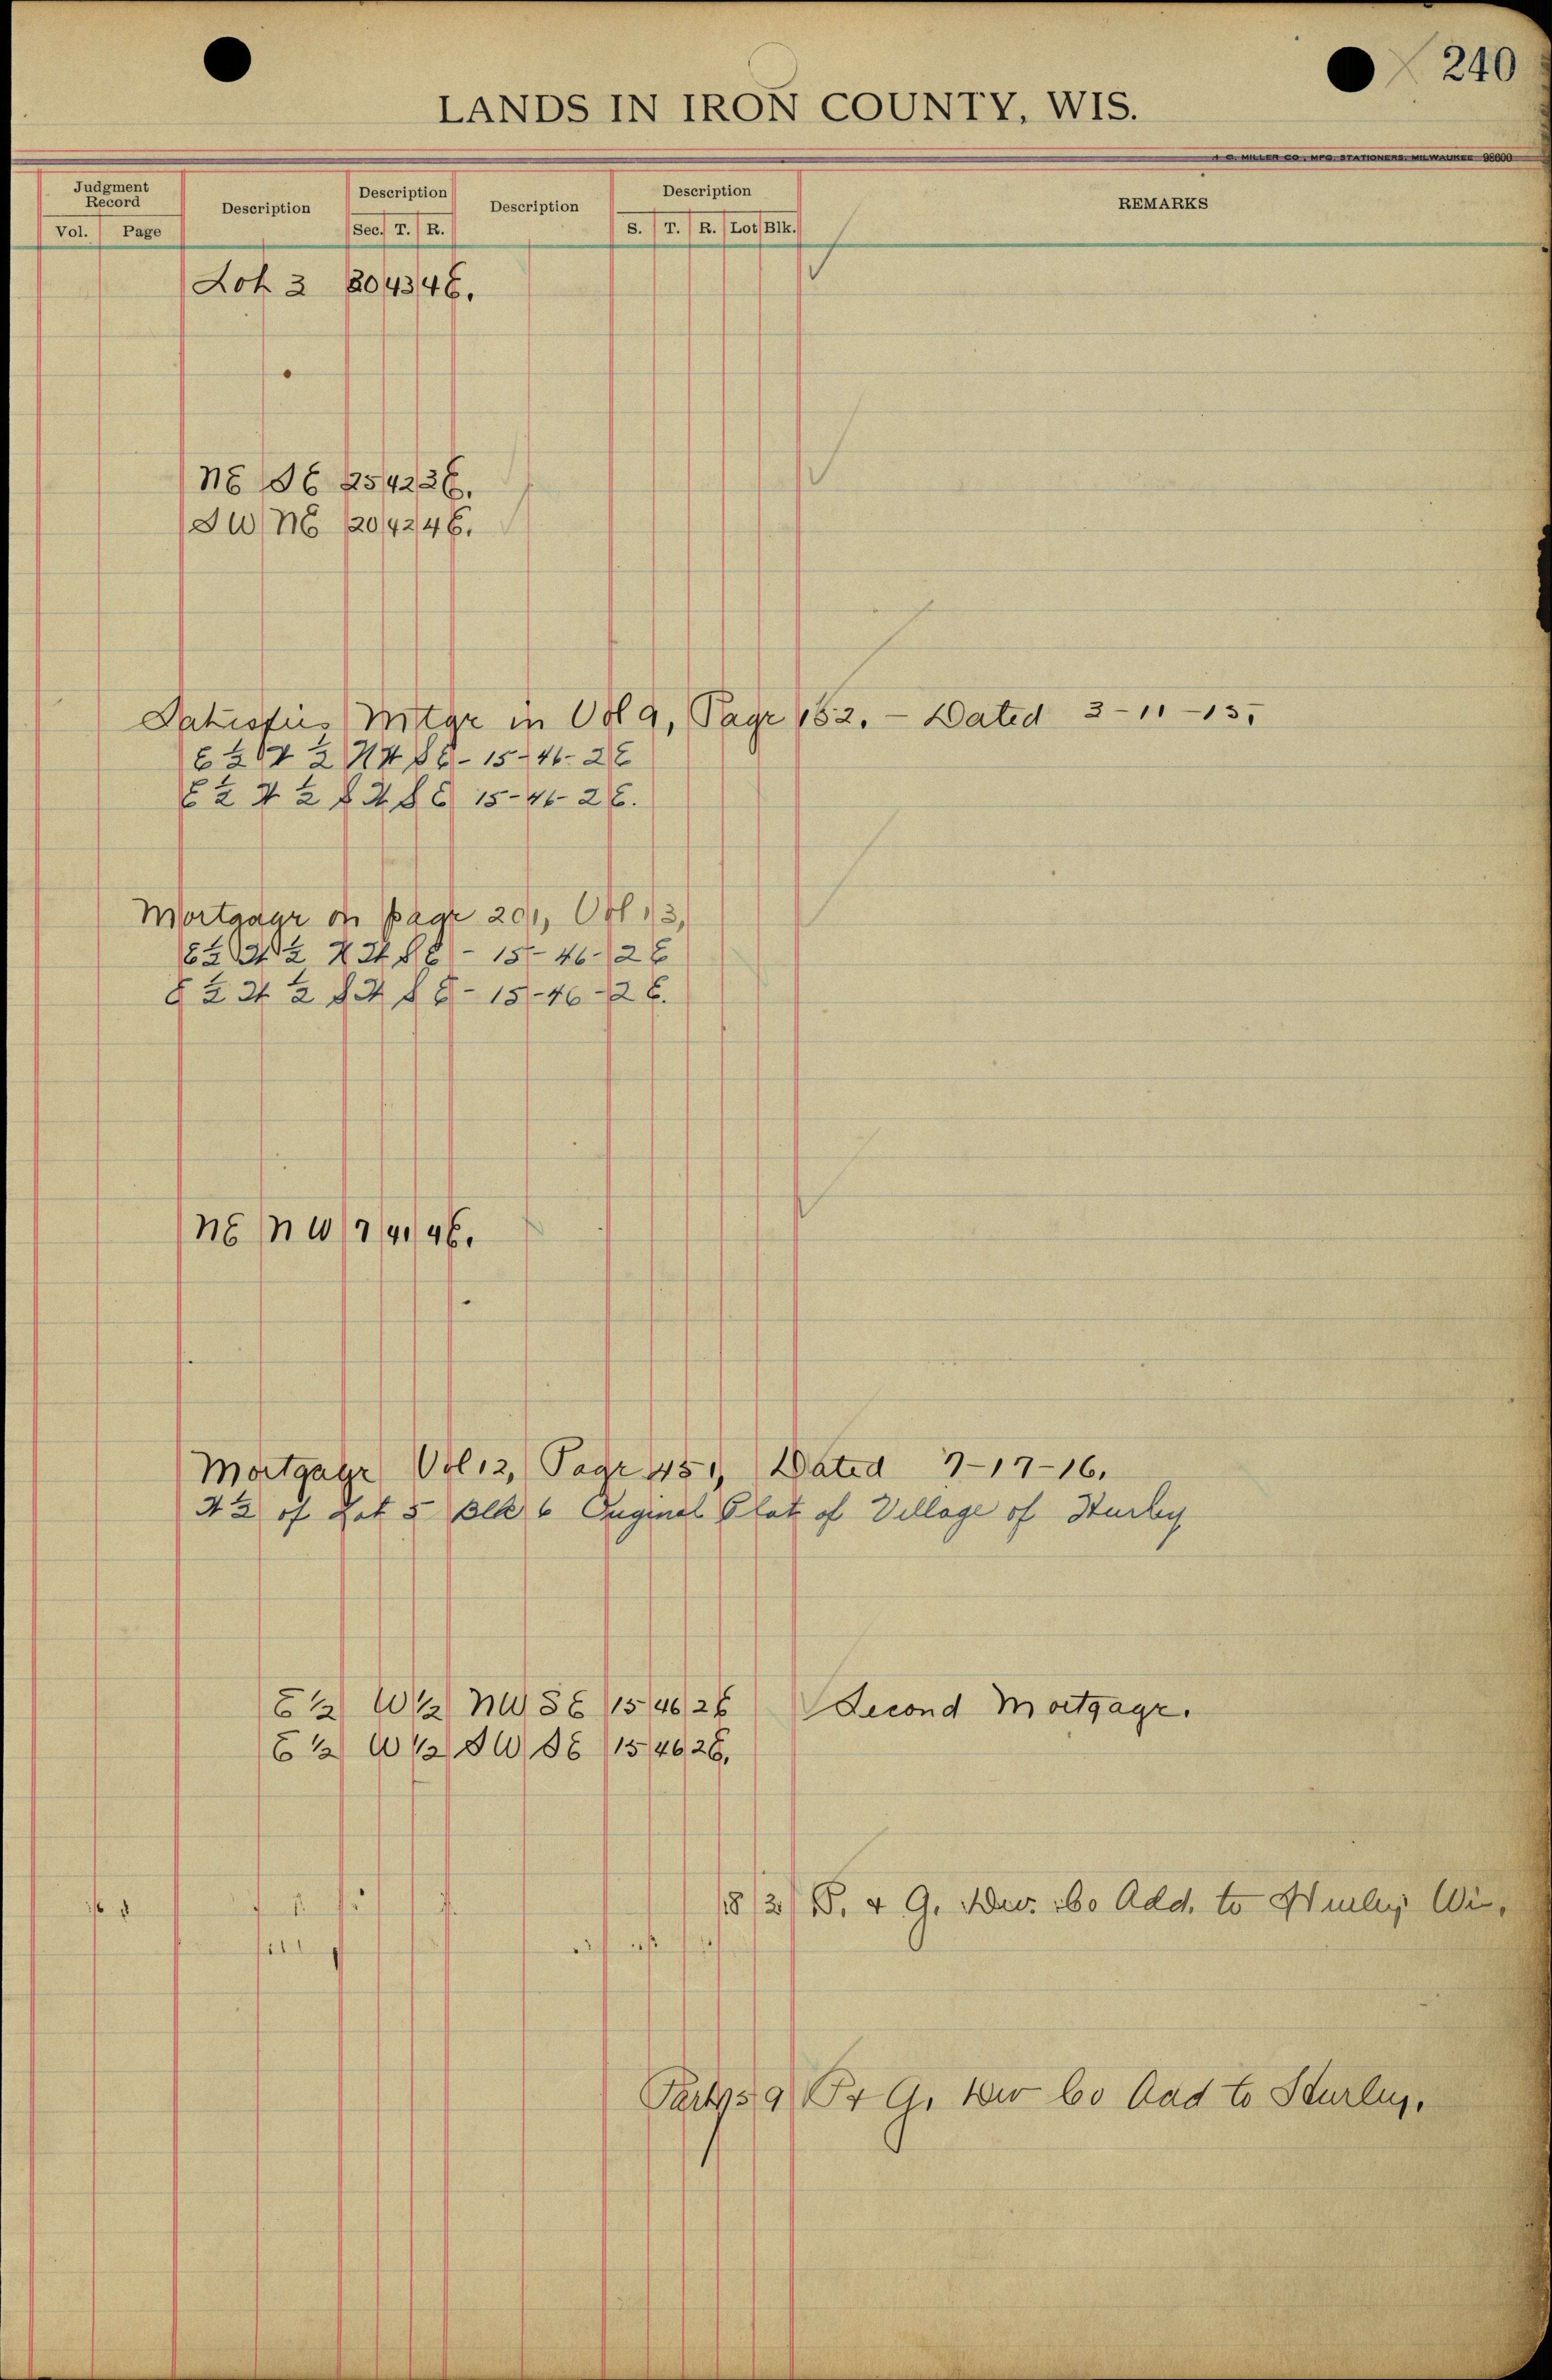 240
LANDS IN IRON COUNTY, WIS.
J. C. MILLER CO., MFG. STATIONERS, MILWAUKEE 98600
Judgment Record Description Description Description Description REMARKS
Vol. Page Sec. T. R. S. T. R. Lot Blk.
Lot 3 20 43 4E.
NE SE 25 42 3E.
SW NE 20 42 4E.
Satisfies Mtge in Vol 9, Page 152. - Dated 3-11-15.
E½ W½ NW SE - 15-46-2E
E½ W½ SW SE 15-46-2E.
Mortgage on page 201, Vol 13,
E½ W½ NW SE - 15-46-2E
E½ W½ SW SE - 15-46-2E.
NE NW 7 41 4E.
Mortgage Vol 12, Page 451, Dated 7-17-16.
of Lot 5 Blk 6 Original Plat of Village of Hurley
E½ W½ NW SE 15 46 2E Second Mortgage.
E½ W½ SW SE 15 46 2E.
18 2 P. & G. Dev. Co Add. to Hurley Wis.
5 9 P & G. Dev Co Add to Hurley.